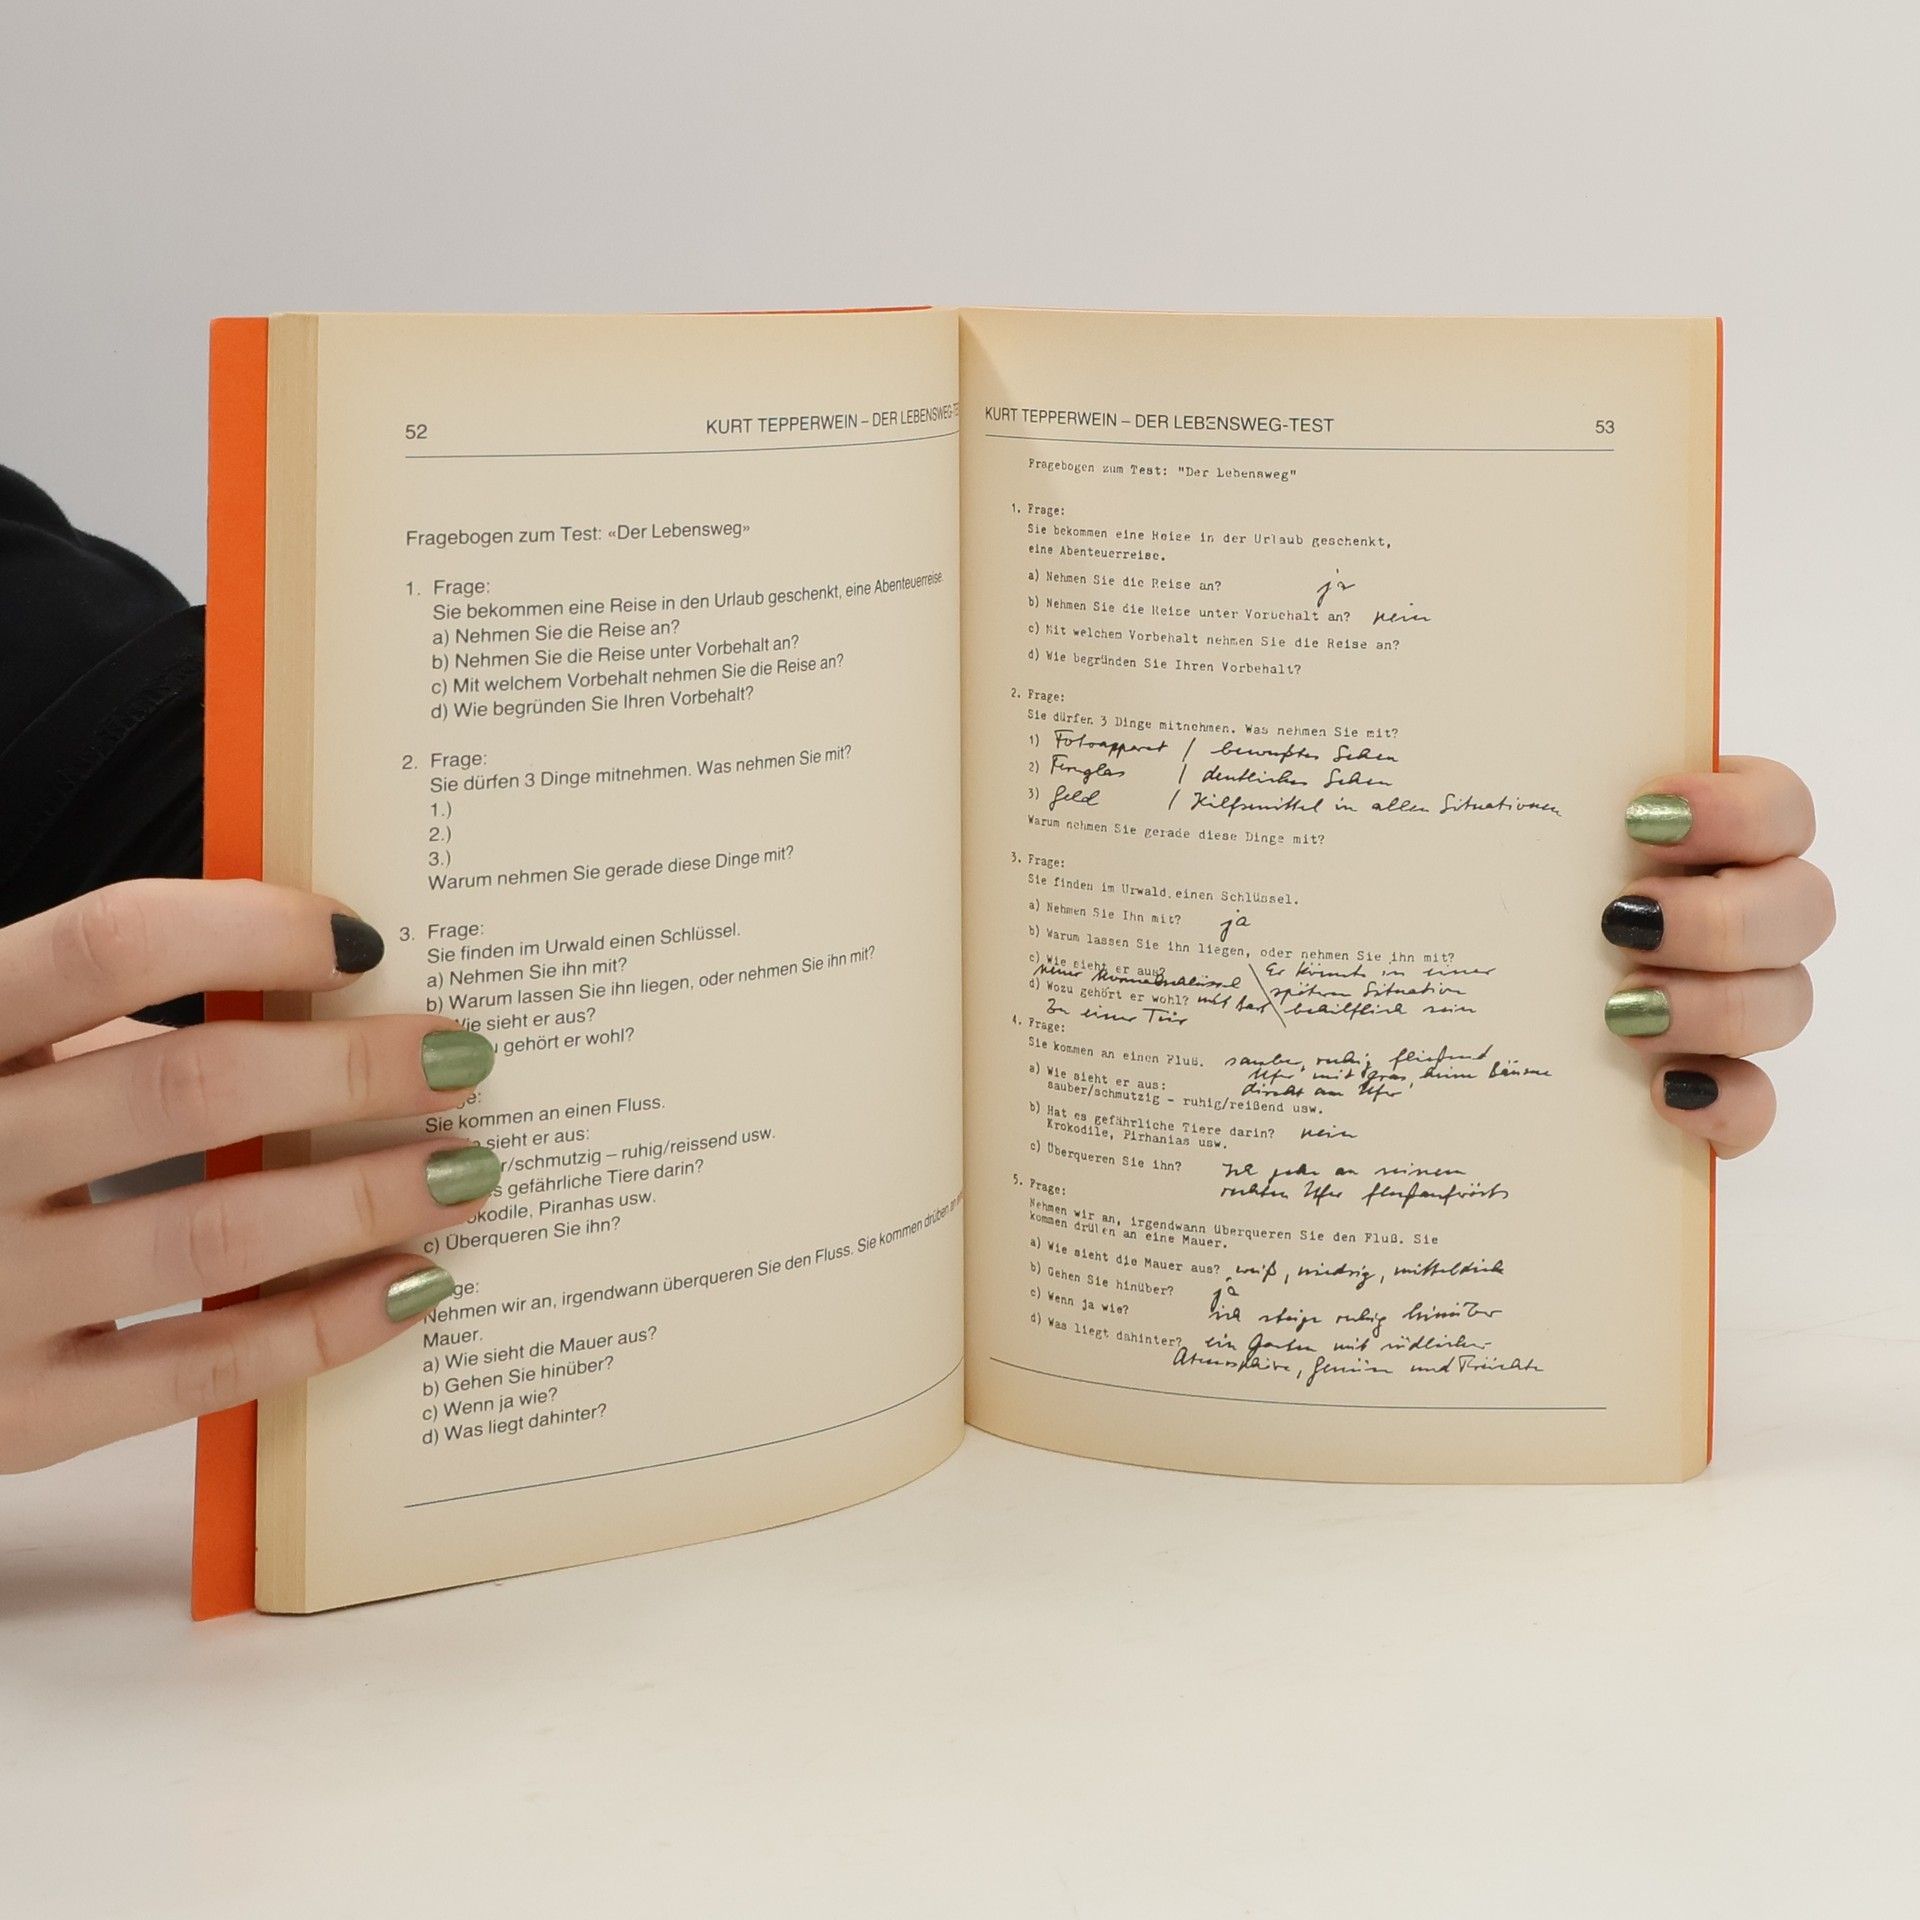 52
KURT TEPPERWEIN – DER LEBENSWEG-TE
Fragebogen zum Test: «Der Lebensweg»
1. Frage:
Sie bekommen eine Reise in den Urlaub geschenkt, eine Abenteuerreise.
a) Nehmen Sie die Reise an?
b) Nehmen Sie die Reise unter Vorbehalt an?
c) Mit welchem Vorbehalt nehmen Sie die Reise an?
d) Wie begründen Sie Ihren Vorbehalt?
2. Frage:
Sie dürfen 3 Dinge mitnehmen. Was nehmen Sie mit?
1.)
2.)
3.)
Warum nehmen Sie gerade diese Dinge mit?
3. Frage:
Sie finden im Urwald einen Schlüssel.
a) Nehmen Sie ihn mit?
b) Warum lassen Sie ihn liegen, oder nehmen Sie ihn mit?
Wie sieht er aus?
gehört er wohl?
ge:
Sie kommen an einen Fluss.
sieht er aus:
r/schmutzig – ruhig/reissend usw.
s gefährliche Tiere darin?
okodile, Piranhas usw.
c) Überqueren Sie ihn?
ge:
Nehmen wir an, irgendwann überqueren Sie den Fluss. Sie kommen drüben an
Mauer.
a) Wie sieht die Mauer aus?
b) Gehen Sie hinüber?
c) Wenn ja wie?
d) Was liegt dahinter?
KURT TEPPERWEIN – DER LEBENSWEG-TEST
53
Fragebogen zum Test: "Der Lebensweg"
1. Frage:
Sie bekommen eine Reise in der Urlaub geschenkt,
eine Abenteuerreise.
a) Nehmen Sie die Reise an? ja
b) Nehmen Sie die Reise unter Vorbehalt an? nein
c) Mit welchem Vorbehalt nehmen Sie die Reise an?
d) Wie begründen Sie Ihren Vorbehalt?
2. Frage:
Sie dürfen 3 Dinge mitnehmen. Was nehmen Sie mit?
1) Fotoapparat / bewußtes Sehen
2) Fernglas / deutliches Sehen
3) Geld / Hilfsmittel in allen Situationen
Warum nehmen Sie gerade diese Dinge mit?
3. Frage:
Sie finden im Urwald einen Schlüssel.
a) Nehmen Sie Ihn mit? ja
b) Warum lassen Sie ihn liegen, oder nehmen Sie ihn mit?
c) Wie sieht er aus? Er könnte in einer
späteren Situation
d) Wozu gehört er wohl? mit Bart behilflich sein
Zu einer Tür
4. Frage:
Sie kommen an einen Fluß. sauber, ruhig fließend
Ufer mit Gras, keine Bäume
a) Wie sieht er aus: direkt am Ufer
sauber/schmutzig – ruhig/reißend usw.
b) Hat es gefährliche Tiere darin? nein
Krokodile, Pirhanias usw.
c) Überqueren Sie ihn? Ich gehe an seinem
rechten Ufer flußaufwärts
5. Frage:
Nehmen wir an, irgendwann überqueren Sie den Fluß. Sie
kommen drüben an eine Mauer.
a) Wie sieht die Mauer aus? weiß, niedrig, mitteldick
b) Gehen Sie hinüber? ja
c) Wenn ja wie? ich steige ruhig hinüber
d) Was liegt dahinter? ein Garten mit südlicher
Atmosphäre, Gemüse und Früchte